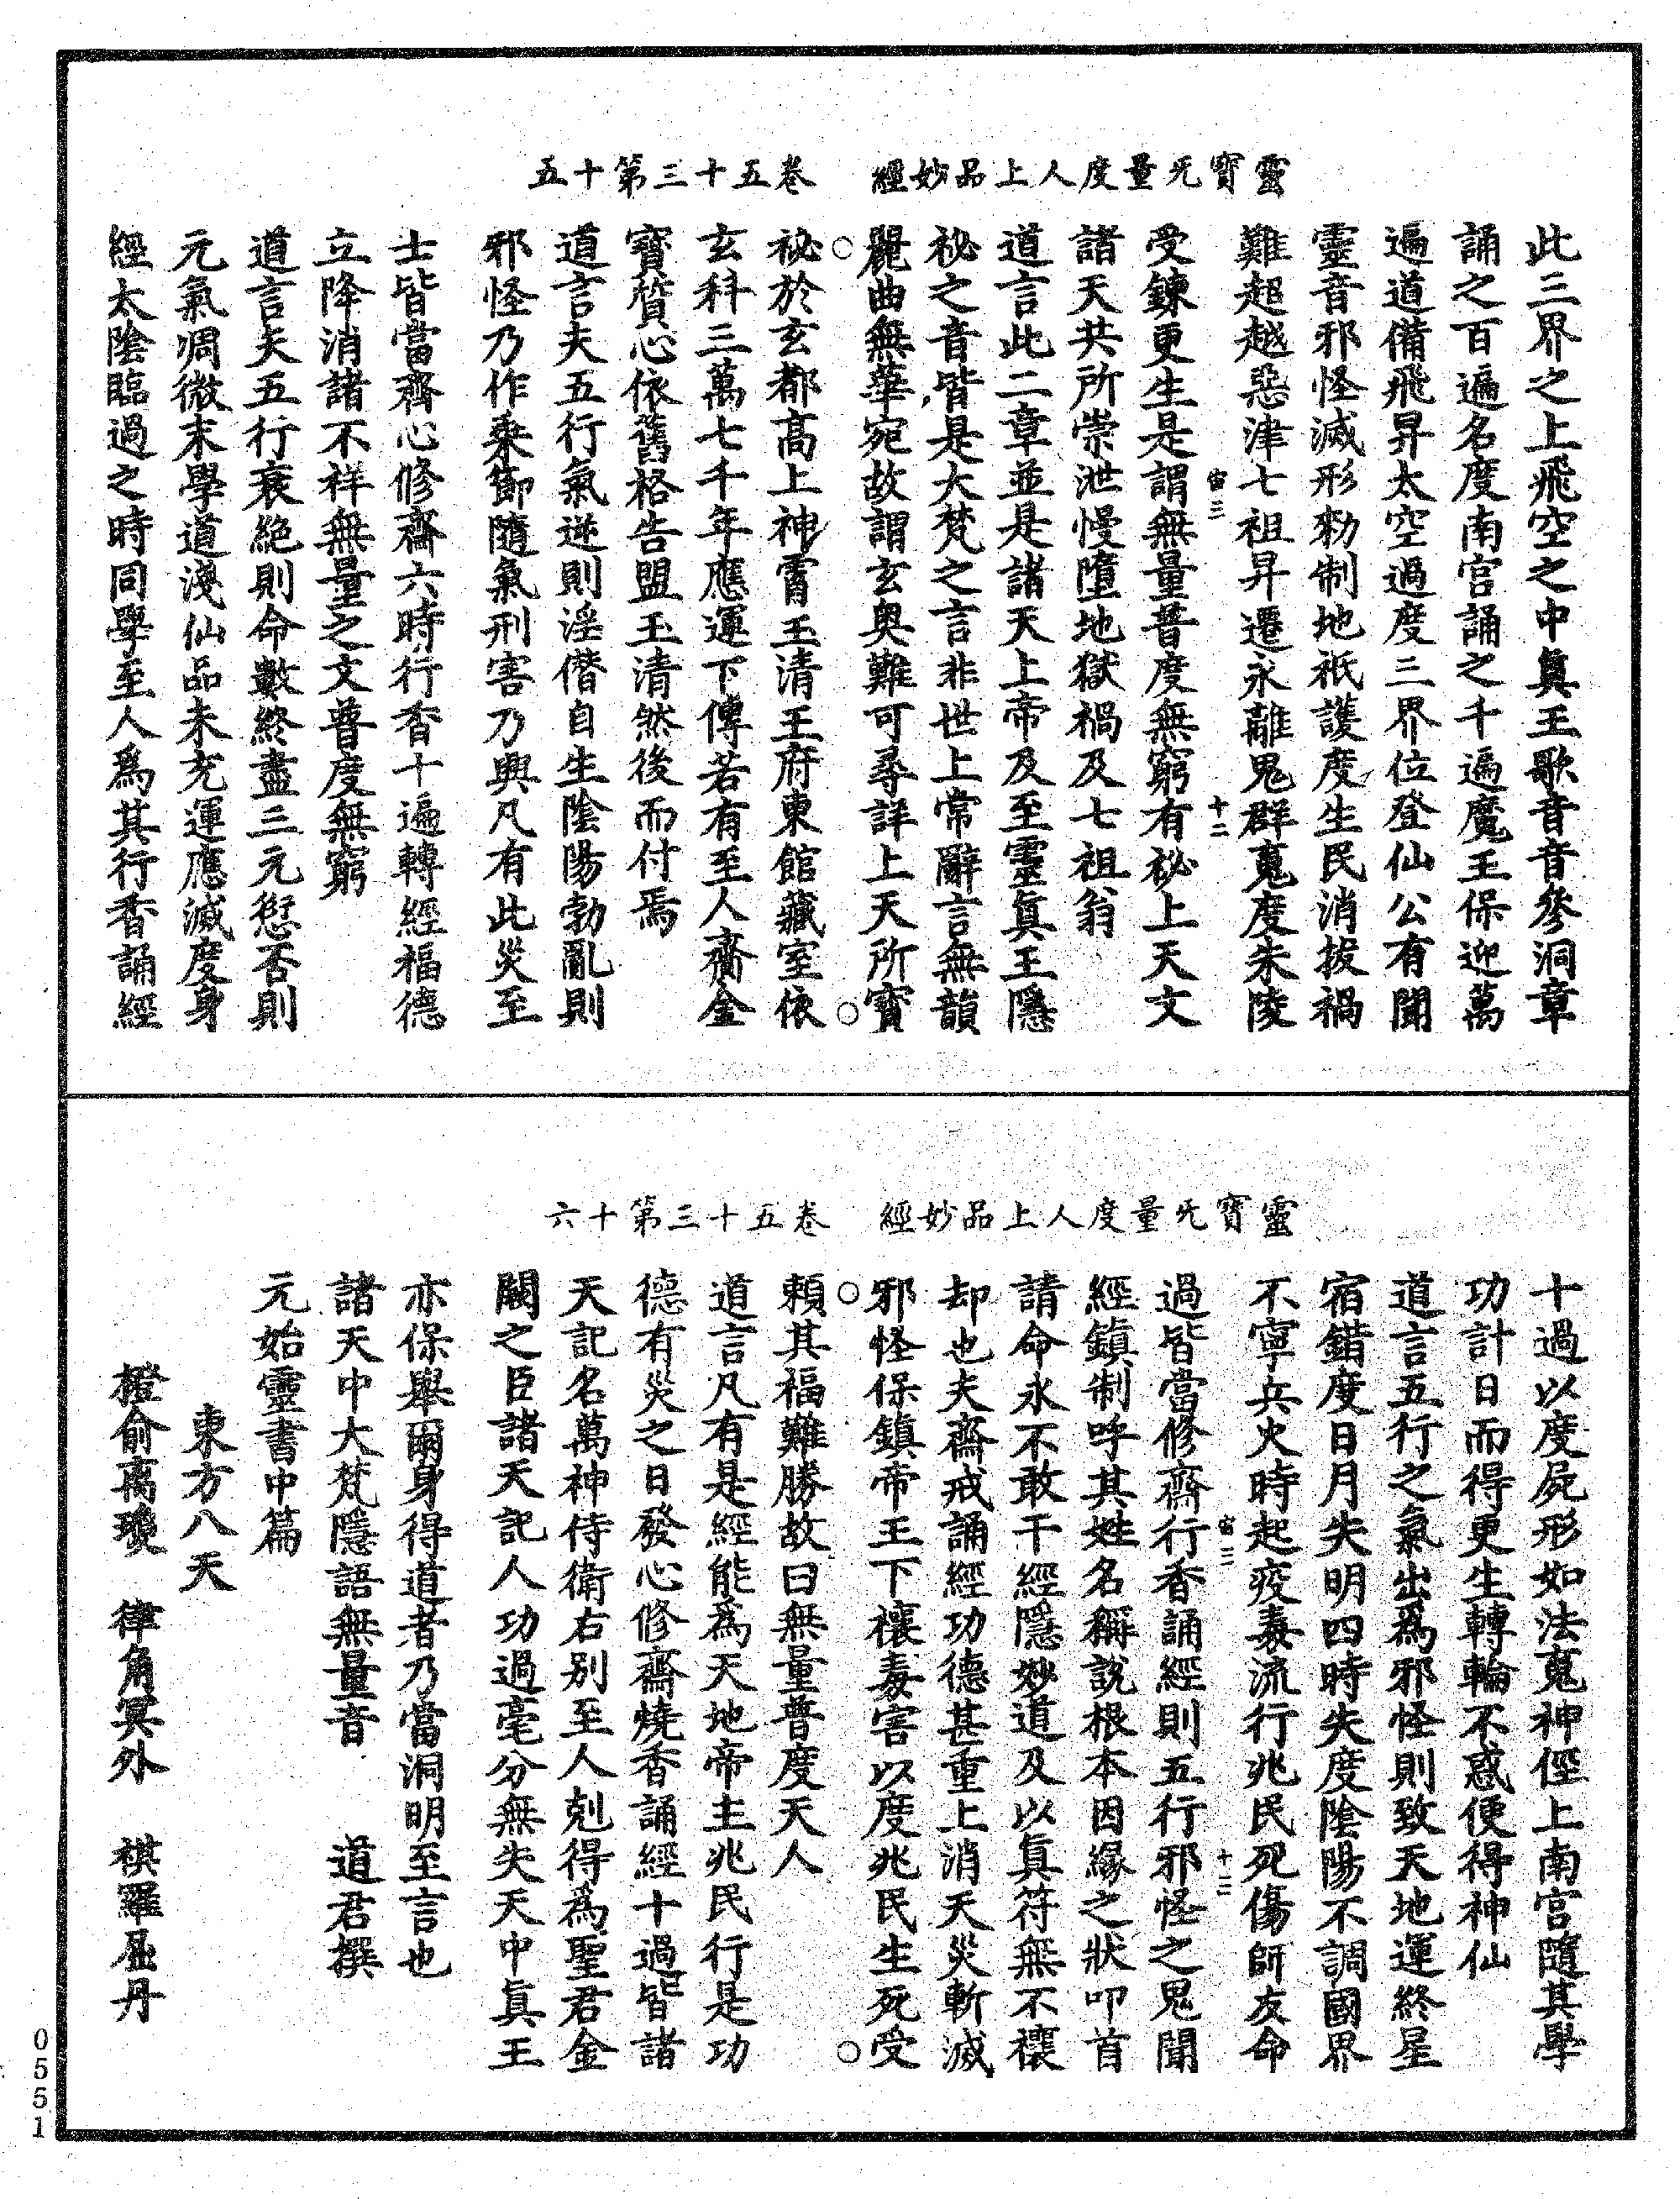 靈寶旡量度人上品妙經 卷五十三第十五
此三界之上飛空之中眞王歌音音參洞章
誦之百遍名度南宮誦之千遍魔王保迎萬
遍道備飛昇太空過度三界位登仙公有聞
靈音邪怪滅形勑制地祇護度生民消拔禍
難超越惡津七祖昇遷永離鬼群䰟度朱陵
受鍊更生是謂無量普度無窮有祕上天文
諸天共所崇泄慢墮地獄禍及七祖翁
道言此二章並是諸天上帝及至靈眞王隱
祕之音皆是大梵之言非世上常辭言無韻
麗曲無華宛故謂玄奥難可尋詳上天所寶
祕於玄都高上神霄玉清王府東館藏室依
玄科三萬七千年應運下傳若有至人齎金
寶質心依舊格告盟玉清然後而付焉
道言夫五行氣逆則淫僭自生陰陽勃亂則
邪怪乃作乘節隨氣刑害乃興凡有此災至
士皆當齊心修齋六時行香十遍轉經福德
立降消諸不祥無量之文普度無窮
道言夫五行衰絶則命數終盡三元愆否則
元氣凋微末學道淺仙品未充運應滅度身
經太陰臨過之時同學至人爲其行香誦經
宙三
十二
靈寶旡量度人上品妙經 卷五十三第十六
十過以度屍形如法䰟神徑上南宮隨其學
功計日而得更生轉輪不惑便得神仙
道言五行之氣出爲邪怪則致天地運終星
宿錯度日月失明四時失度陰陽不調國界
不寧兵火時起疫毒流行兆民死傷師友命
過皆當修齋行香誦經則五行邪怪之鬼聞
經鎮制呼其姓名稱説根本因緣之狀叩首
請命永不敢干經隱妙道及以眞符無不禳
却也夫齋戒誦經功德甚重上消天災斬滅
邪怪保鎮帝王下禳毒害以度兆民生死受
頼其福難勝故曰無量普度天人
道言凡有是經能爲天地帝主兆民行是功
德有災之日發心修齋燒香誦經十過皆諸
天記名萬神侍衛右别至人剋得爲聖君金
闕之臣諸天記人功過毫分無失天中眞王
亦保舉爾身得道者乃當洞明至言也
諸天中大梵隱語無量音 道君撰
元始靈書中篇
東方八天
橙俞禹瓊 律角冥外 祺羅屈丹
宙三
十三
0551